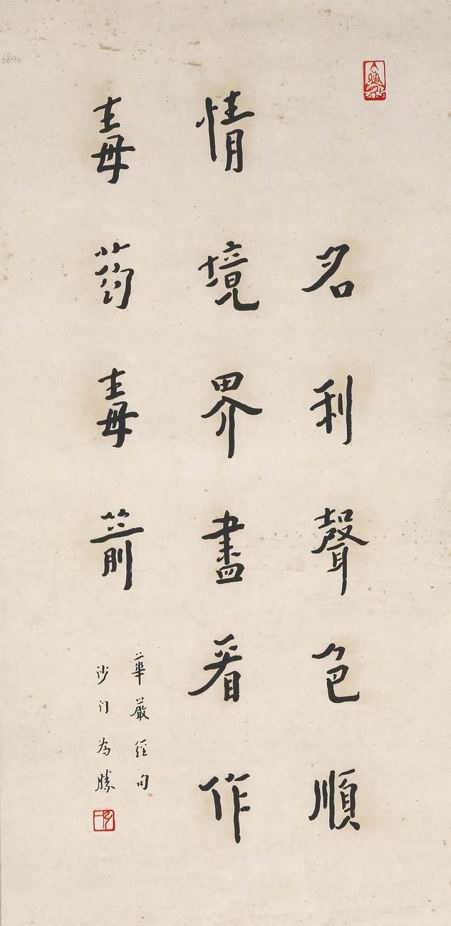 名利聲色順
情境界盡看作
毒葯毒箭
華嚴經句
沙门為勝